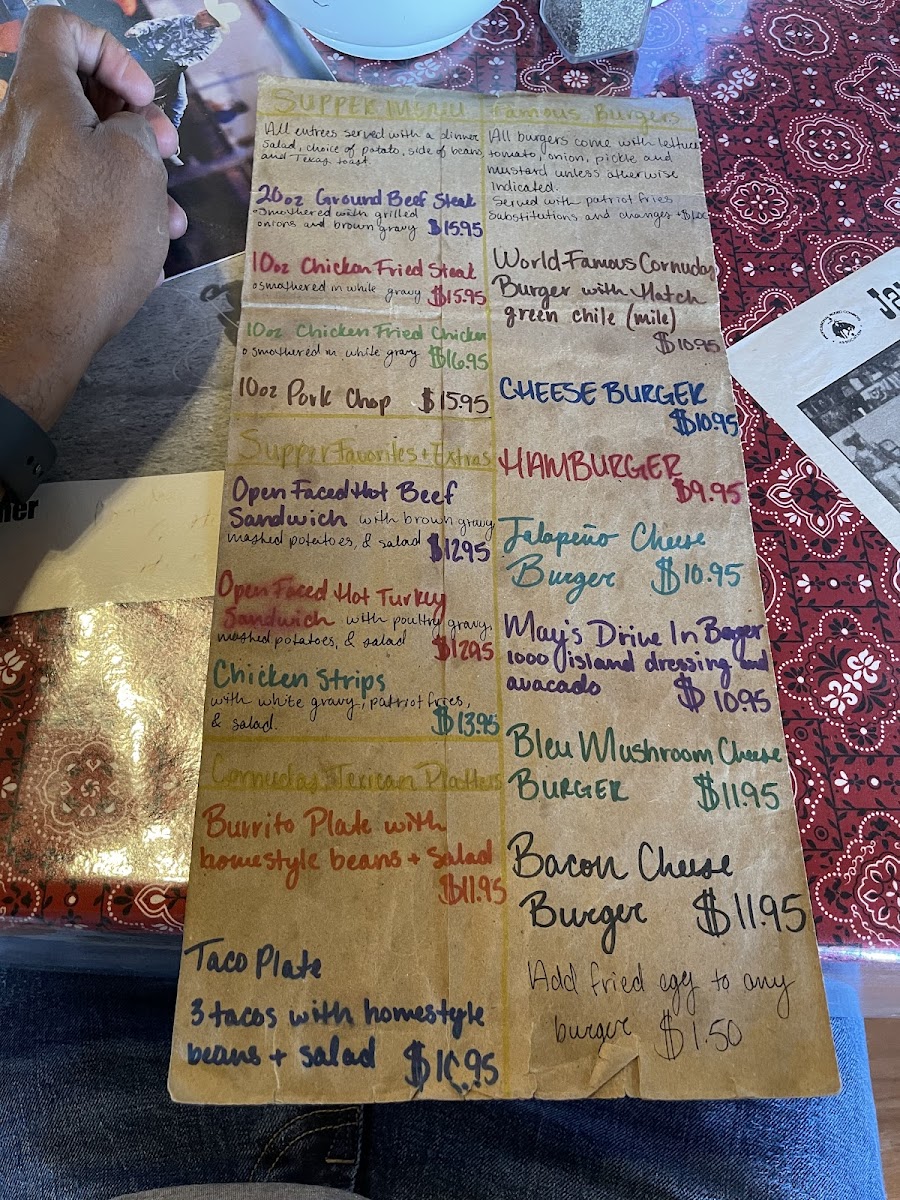 SUPPER MENU
All entrees served with a dinner
Salad, choice of potato, side of beans,
and Texas toast.
20oz Ground Beef Steak
smothered with grilled
onions and brown gravy $15.95
10oz Chicken Fried Steak
smothered in white gravy $15.95
10oz Chicken Fried Chicken
smothered in white gravy $16.95
10oz Pork Chop $15.95
Supper Favorites + Extras
Open Faced Hot Beef
Sandwich with brown gravy,
mashed potatoes, & salad $12.95
Open Faced Hot Turkey
Sandwich with poultry gravy,
mashed potatoes, & salad $12.95
Chicken Strips
with white gravy, patriot fries,
& salad. $13.95
Cornudas Texican Platters
Burrito Plate with
homestyle beans + Salad
$11.95
Taco Plate
3 tacos with homestyle
beans + salad
Famous Burgers
All burgers come with lettuce
tomato, onion, pickle and
mustard unless otherwise
indicated.
Served with patriot fries
Substitutions and changes
World-Famous Cornudas
Burger with Hatch
green chile (mile)
$10.95
CHEESE BURGER
$10.95
HAMBURGER
$9.95
Jalapeño Cheese
Burger $10.95
May's Drive In Burger
1000 island dressing and
avacado $10.95
Bleu Mushroom Cheese
BURGER $11.95
Bacon Cheese
Burger $11.95
Add fried egg to any
burger $1.50